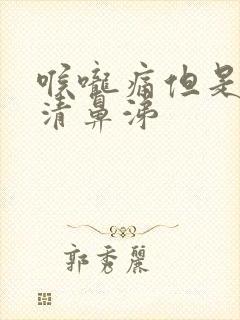 喉嚨痛但是
清鼻涕
郭秀麗